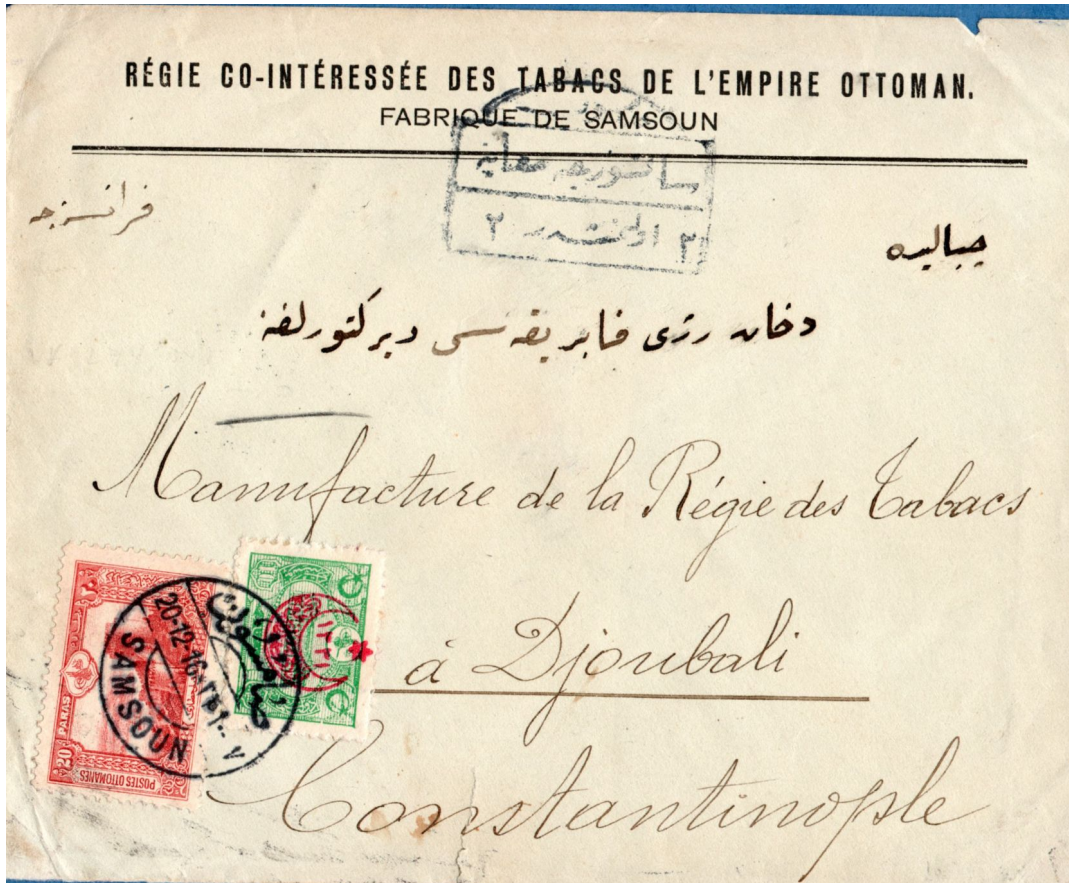 RÉGIE CO-INTÉRESSÉE DES TABACS DE L'EMPIRE OTTOMAN.
FABRIQUE DE SAMSOUN
سانسورجه معاینه
اولنمشدر ٢
فرانسزجه
جبالیده
دخان رژی فابریقه سی دیركتورلغنه
Manufacture de la Régie des Tabacs
à Djoubali
Constantinople
20 PARAS
POSTES OTTOMANES
20-12-16
SAMSOUN
صامسون
10
١٣٣١